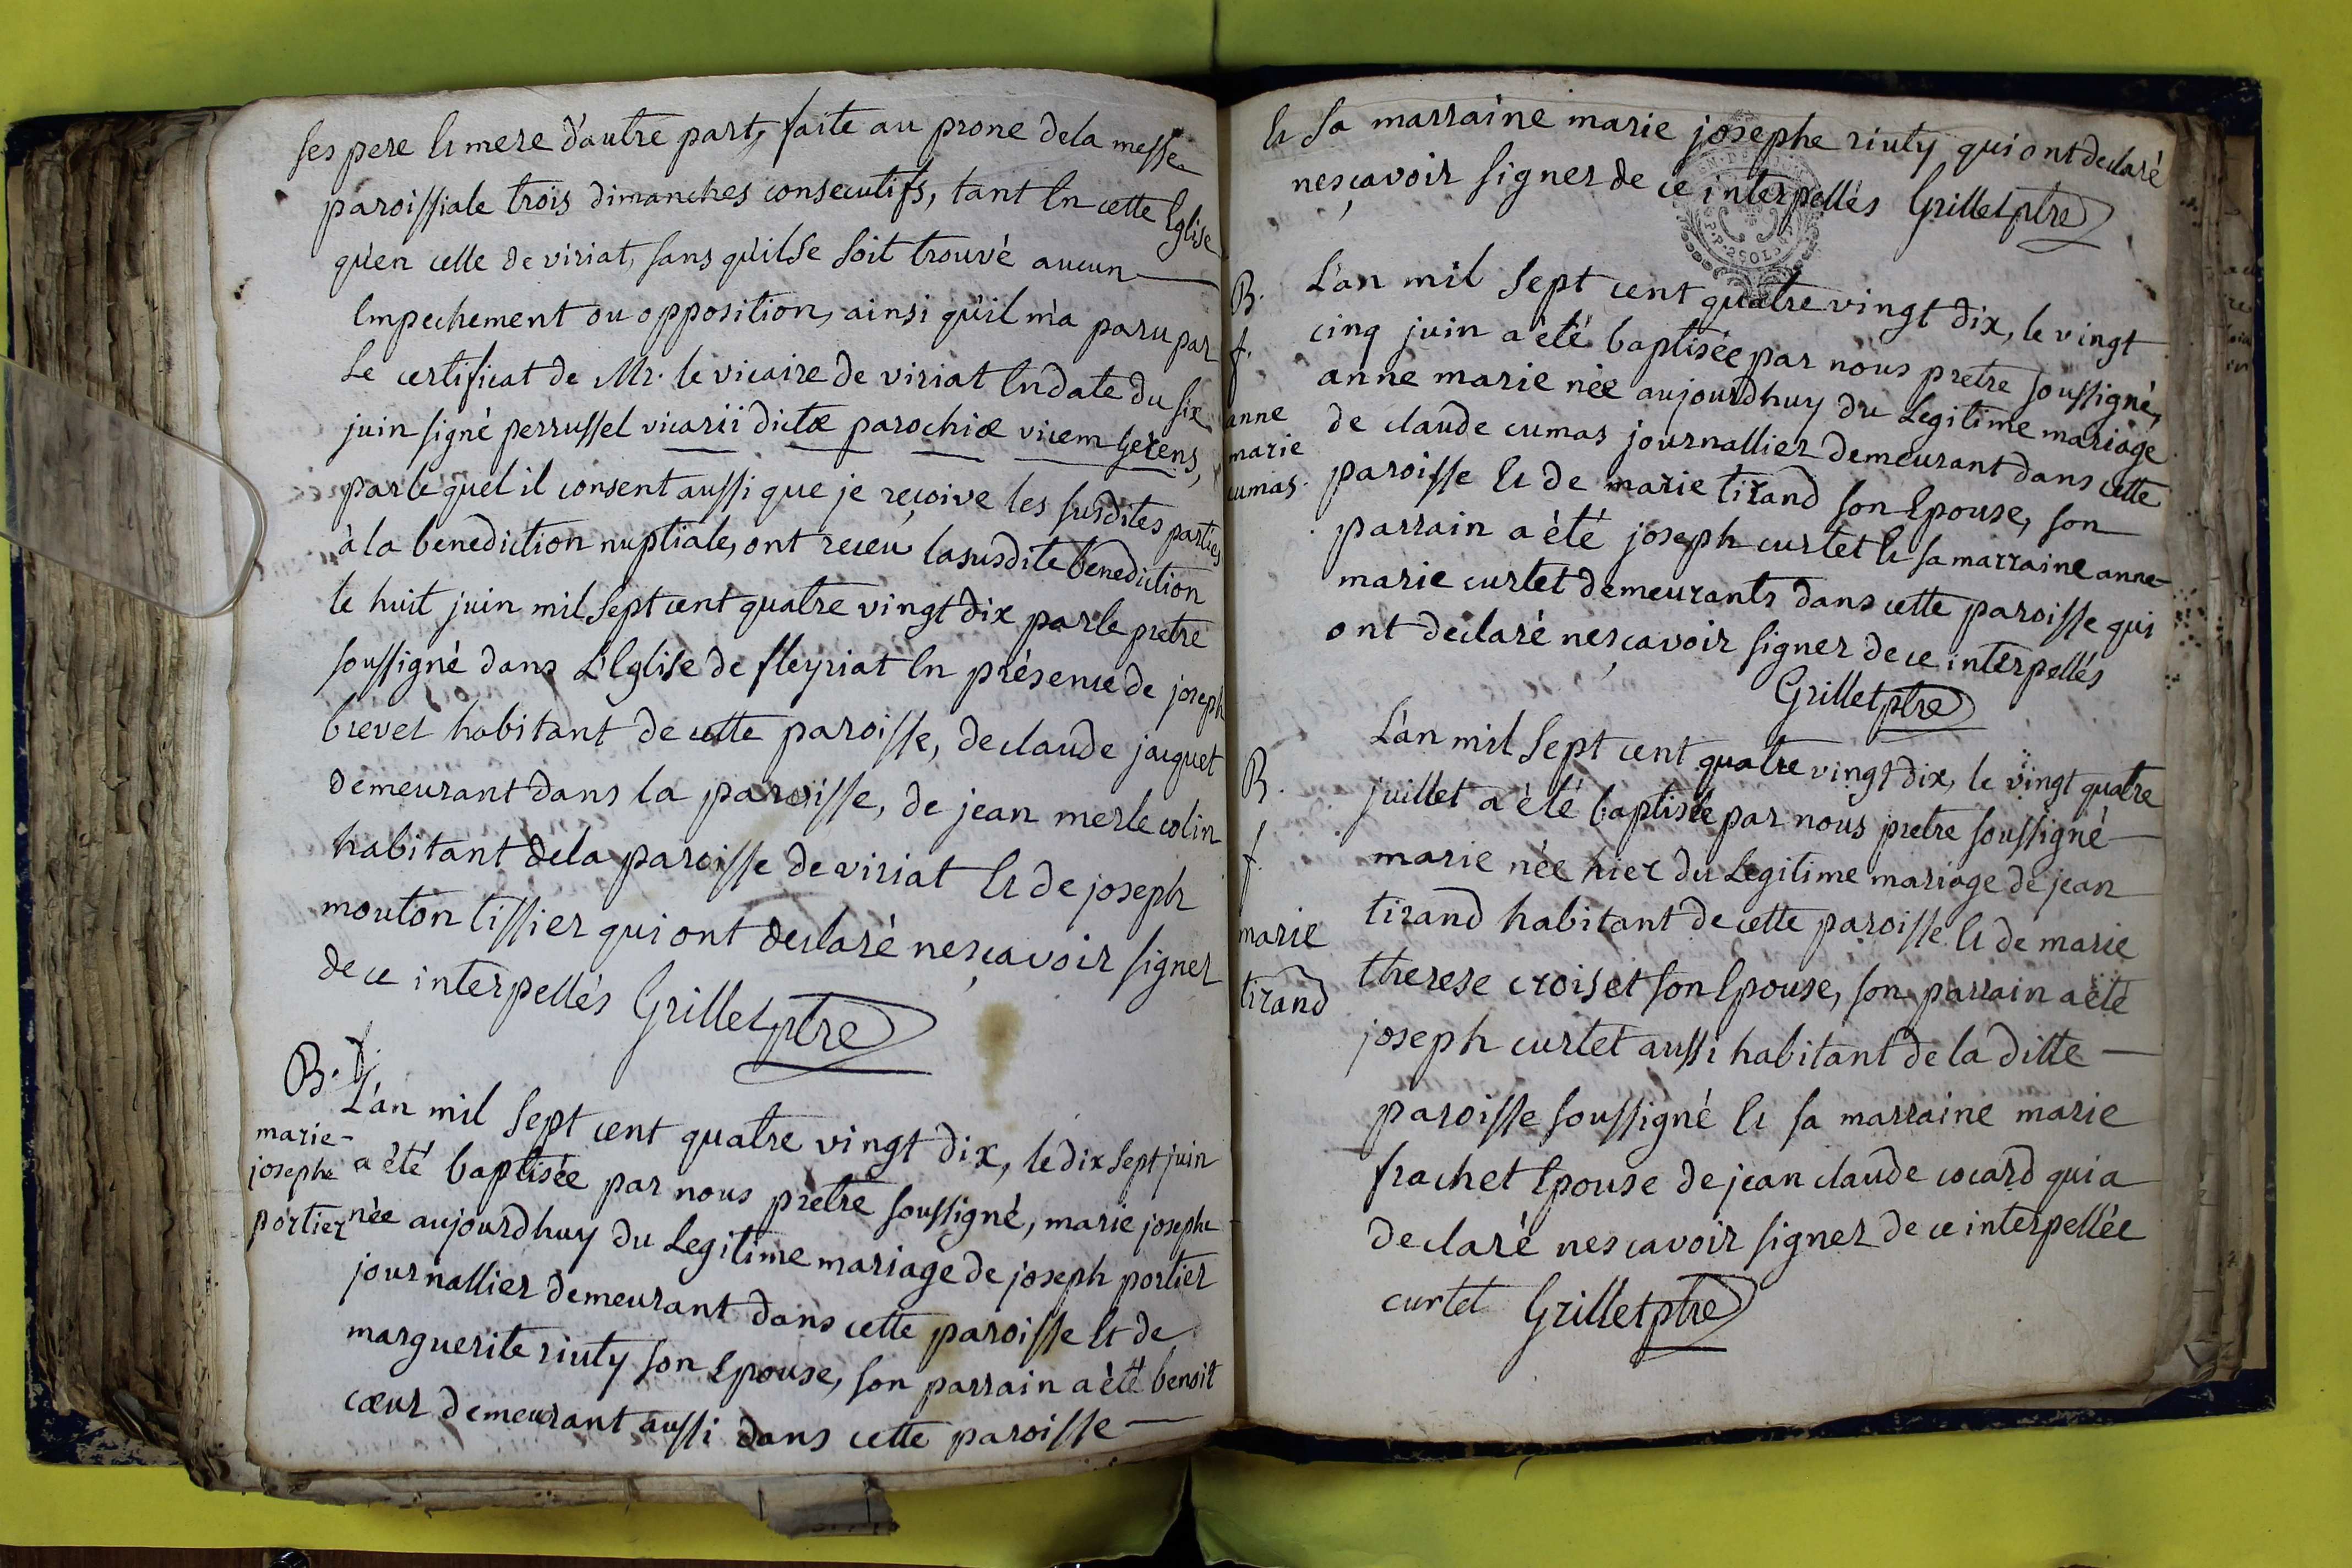 ses pere et mere d'autre part, faite au prone dela messe
paroissiale trois dimanches consecutifs, tant En cette Eglise
qu'en celle de viriat, sans qu'il se soit trouvé aucun
Empechement ou opposition, ainsi qu'il m'a paru par
Le certificat de Mr. le vicaire de viriat En date du six
juin signé perrussel vicarii dictæ parochiæ vicem gerens,
par lequel il consent aussi que je reçoive les susdites parties
à la benediction nuptiale, ont receu la susdite benediction
le huit juin mil sept cent quatre vingt dix par le pretre
soussigné dans L'Eglise de fleyriat En présence de joseph
brevet habitant de cette paroisse, de claude jaquet
demeurant dans la paroisse, de jean merle colin
habitant dela paroisse de viriat Et de joseph
mouton tissier qui ont declaré nesçavoir signer
de ce interpellés Grillet ptre
B. f.
marie-
josephe
portier
L'an mil sept cent quatre vingt dix, le dix sept juin
a été baptisée par nous pretre soussigné, marie josephe
née aujourdhuy du Legitime mariage de joseph portier
journallier demeurant dans cette paroisse Et de
marguerite riuty son Epouse, son parrain a été benoit
cœur demeurant aussi dans cette paroisse
Et sa marraine marie josephe riuty qui ont declaré
nesçavoir signer de ce interpellés Grillet ptre
B.
f.
anne
marie
cumas.
L'an mil sept cent quatre vingt dix, le vingt
cinq juin a été baptisée par nous pretre soussigné,
anne marie née aujourdhuy du Legitime mariage
de claude cumas journallier demeurant dans cette
paroisse Et de marie tirand son Epouse, son
parrain a été joseph curtet Et sa marraine anne
marie curtet demeurants dans cette paroisse qui
ont declaré nesçavoir signer de ce interpellés
Grillet ptre
B.
f.
marie
tirand
L'an mil sept cent quatre vingt dix, le vingt quatre
juillet a été baptisée par nous pretre soussigné
marie née hier du Legitime mariage de jean
tirand habitant de cette paroisse Et de marie
therese croiset son Epouse, son parrain a été
joseph curtet aussi habitant de la ditte
paroisse soussigné Et sa marraine marie
frachet Epouse de jean claude cocard qui a
declaré nescavoir signer de ce interpellée
curtet Grillet ptre